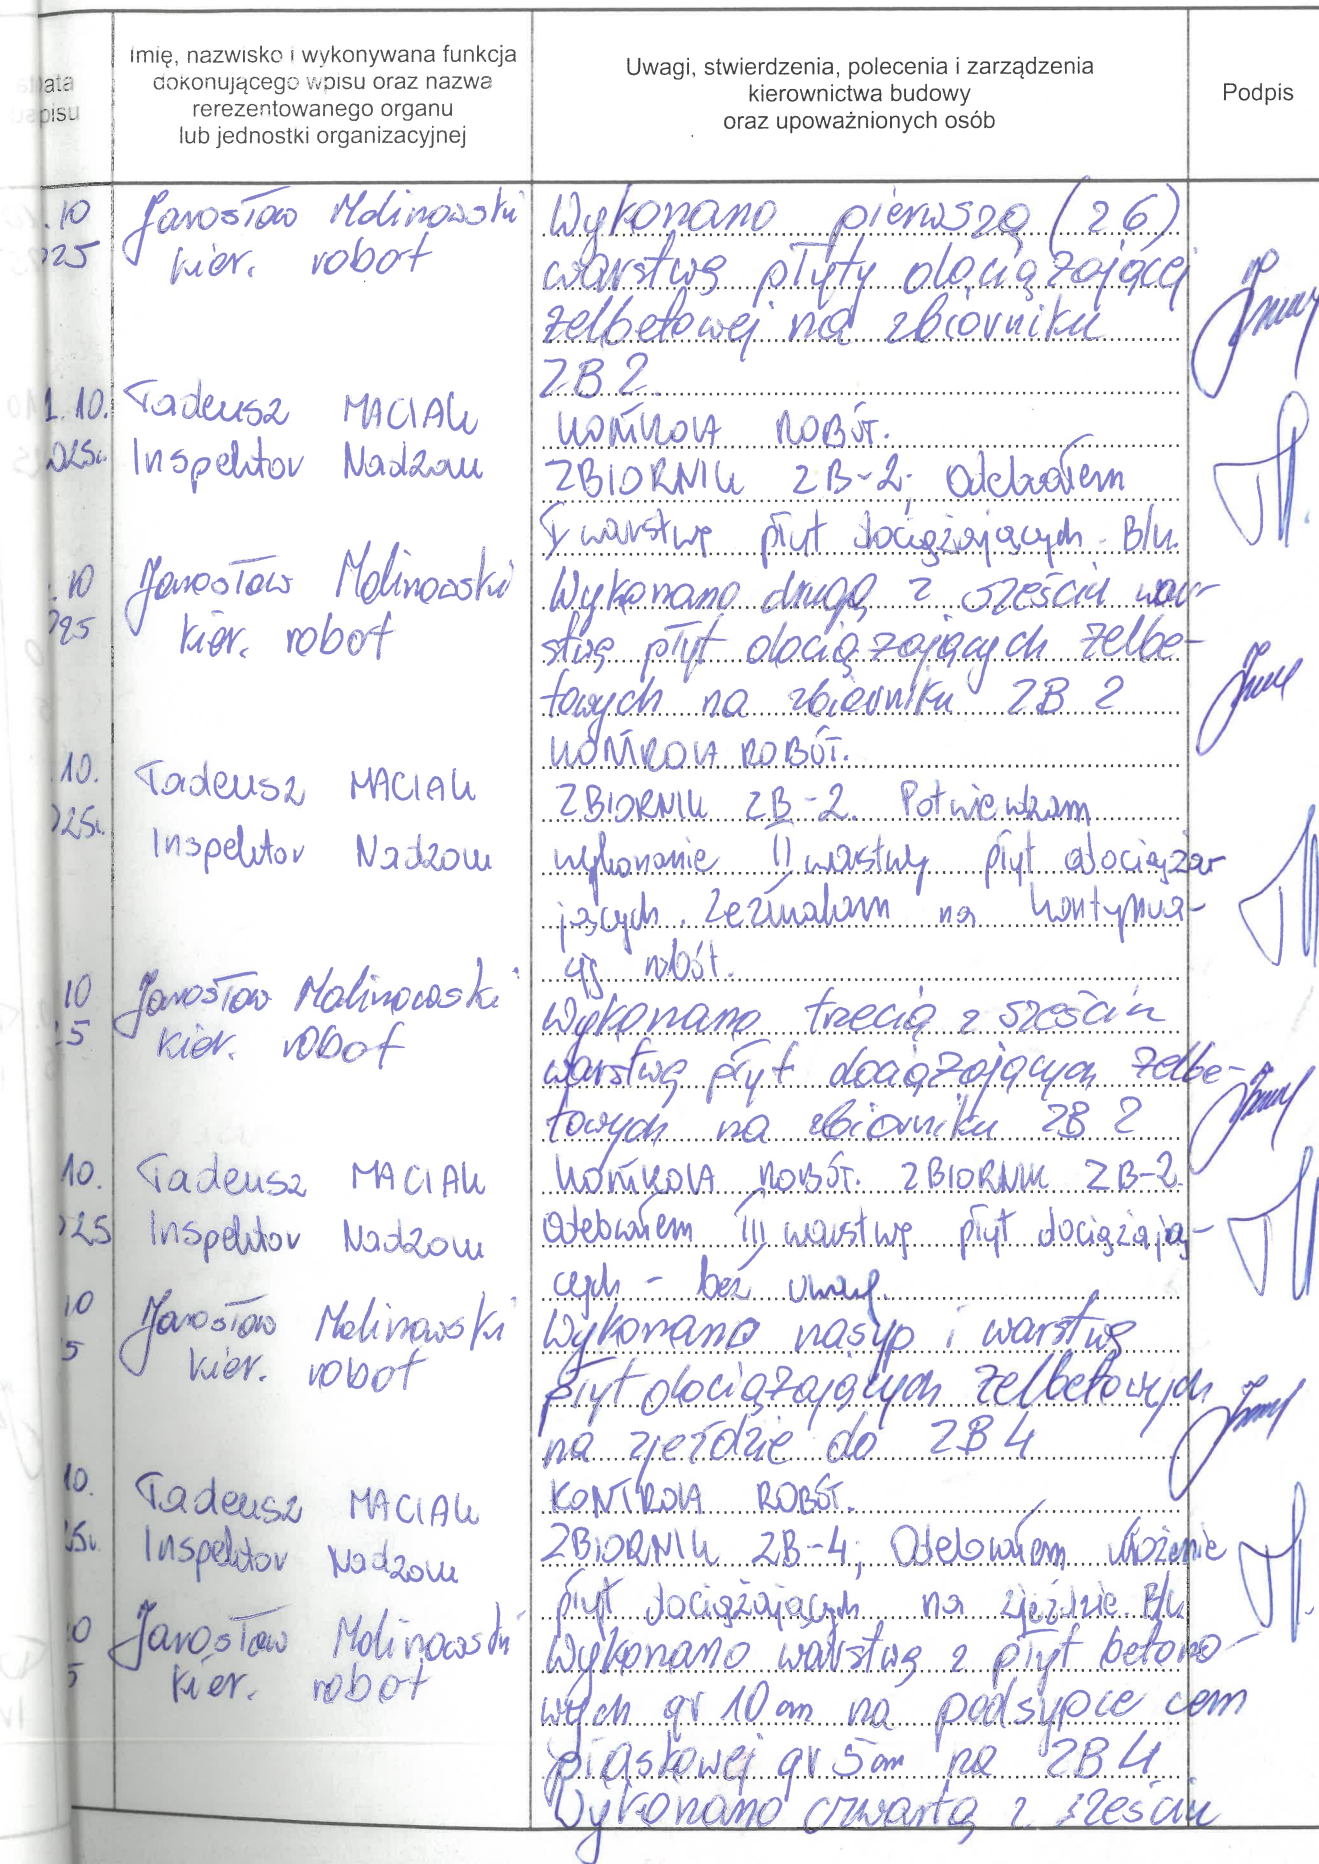 Data
wpisu
Imię, nazwisko i wykonywana funkcja
dokonującego wpisu oraz nazwa
rerezentowanego organu
lub jednostki organizacyjnej
Uwagi, stwierdzenia, polecenia i zarządzenia
kierownictwa budowy
oraz upoważnionych osób
Podpis
.10
025
Jarosław Malinowski
kier. robot
Wykonano pierwszą (z 6)
warstwę płyty dociążającej
żelbetowej na zbiorniku
ZB 2
1.10.
025r.
Tadeusz MACIAK
Inspektor Nadzoru
KONTROLA ROBÓT.
ZBIORNIK ZB-2; Odebrałem
I warstwę płyt dociążających - B/u.
.10
025
Jarosław Malinowski
kier. robot
Wykonano drugą z sześciu war-
stwę płyt dociążających żelbe-
towych na zbiorniku ZB 2
10.
025r.
Tadeusz MACIAK
Inspektor Nadzoru
KONTROLA ROBÓT.
ZBIORNIK ZB-2. Potwierdzam
wykonanie II warstwy płyt dociąża-
jących. Zezwalam na kontynua-
cję robót.
10
5
Jarosław Malinowski
kier. robot
Wykonano trzecią z sześciu
warstwę płyt dociążających żelbe-
towych na zbiorniku ZB 2
10.
025
Tadeusz MACIAK
Inspektor Nadzoru
KONTROLA ROBÓT. ZBIORNIK ZB-2.
Odebrałem III warstwę płyt dociążają-
cych - bez uwag.
10
5
Jarosław Malinowski
kier. robot
Wykonano nasyp i warstwę
płyt dociążających żelbetowych
na zjeździe do ZB 4
10.
5r.
Tadeusz MACIAK
Inspektor Nadzoru
KONTROLA ROBÓT.
ZBIORNIK ZB-4; Odebrałem ułożenie
płyt dociążających na zjeździe B/u
0
5
Jarosław Malinowski
kier. robot
Wykonano warstwę z płyt betono-
wych gr 10 cm na podsypce cem
piaskowej gr 5 cm na ZB 4
Wykonano czwartą z sześciu